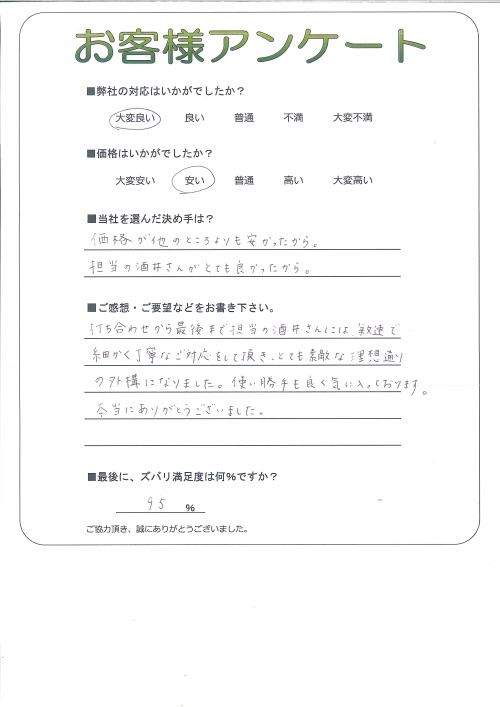 お客様アンケート
■弊社の対応はいかがでしたか？
大変良い 良い 普通 不満 大変不満
■価格はいかがでしたか？
大変安い 安い 普通 高い 大変高い
■当社を選んだ決め手は？
価格が他のところよりも安かったから。
担当の酒井さんがとても良かったから。
■ご感想・ご要望などをお書き下さい。
打ち合わせから最後まで担当の酒井さんには敏速で
細かく丁寧なご対応をして頂き、とても素敵な理想通り
の外構になりました。使い勝手も良く気に入っております。
本当にありがとうございました。
■最後に、ズバリ満足度は何%ですか？
95 %
ご協力頂き、誠にありがとうございました。